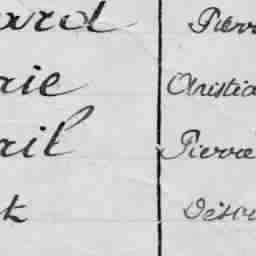 ard Pierr
rie Christia
ril Pierre
t Désir